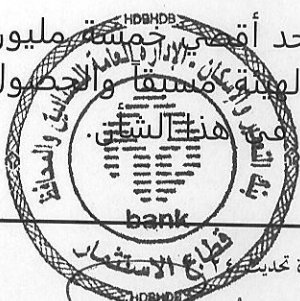 حد أقصى خمسة مليون
الهيئة مسبقاً والحصول
في هذا الشأن.
HDBHDB
بنك التعمير والإسكان - الإدارة العامة
bank
قطاع الاستثمار
HDBHDB
ة تحديث ٢٤